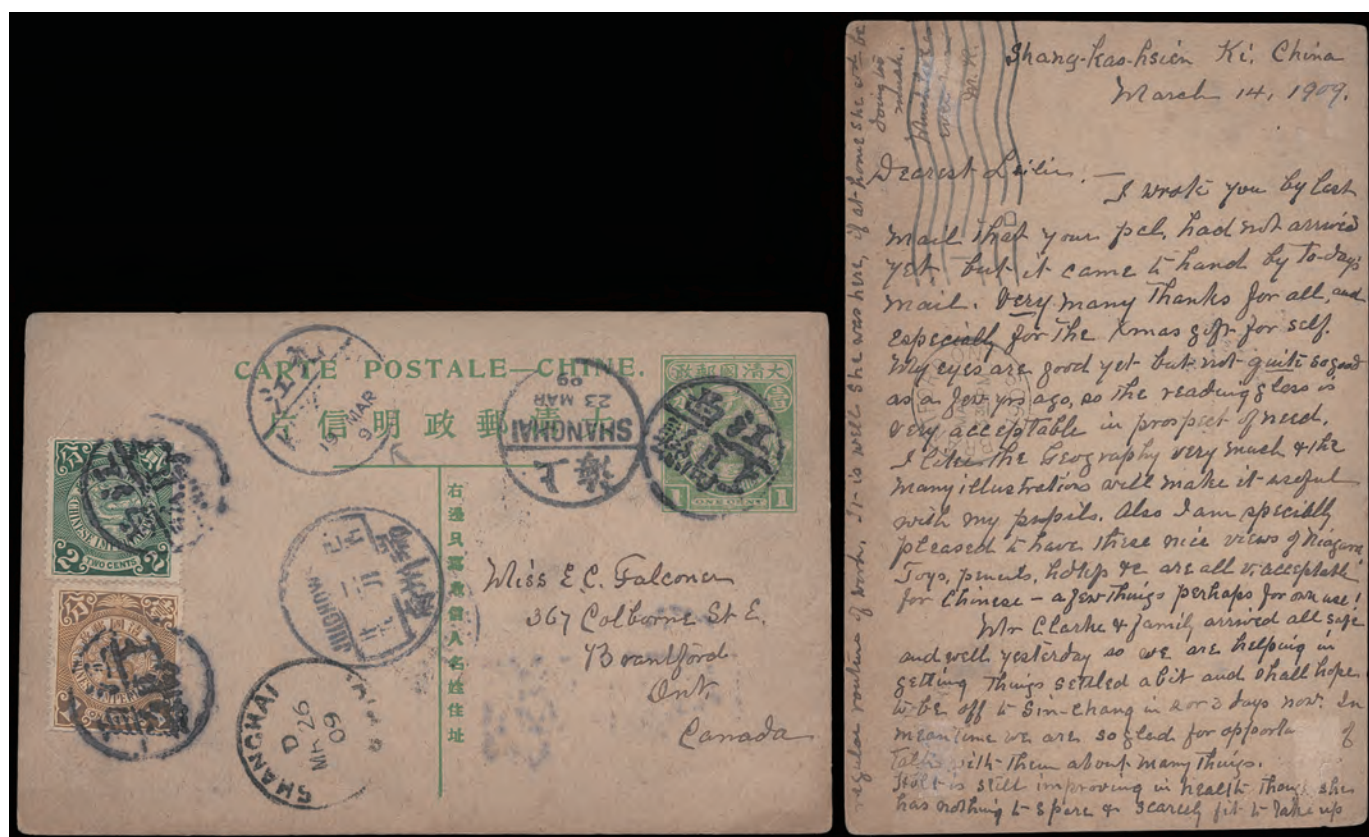 CARTE POSTALE—CHINE.
大清國郵政
大清郵政明信片
右邊只寫收信人名姓住址
1 ONE CENT 1
SHANGHAI
23 MAR
09
上海
九江
19 MAR
9
2 TWO CENTS 2
CHINESE IMPERIAL
JUICHOW
SHANGHAI
D
MR 26
09
Miss E. C. Falconer
367 Colborne St E.
Brantford
Ont
Canada
Shang-kao-hsien Ki. China
March 14, 1909.
Dearest Leilin. —
I wrote you by last
mail that your pcl. had not arrived
yet but it came to hand by to-day's
mail. Very many thanks for all, and
especially for the Xmas gift for self.
My eyes are good yet but not quite so good
as a few yrs ago, so the reading glass is
very acceptable in prospect of need.
I like the Geography very much & the
many illustrations will make it useful
with my pupils. Also I am specially
pleased to have these nice views of Niagara
Toys, pencils, hdkfs &c are all v. acceptable
for Chinese — a few things perhaps for own use!
Mr Clarke & family arrived all safe
and well yesterday so we are helping in
getting things settled a bit and shall hope
to be off to Sin-Chang in 2 or 3 days now. In
meantime we are so glad for
talks with them about many things.
is still improving in health though she
has nothing to spare & scarcely fit to take up
regular routine of work. It is well she was here, if at home she wd be
doing too
much.
Much love
M.R.